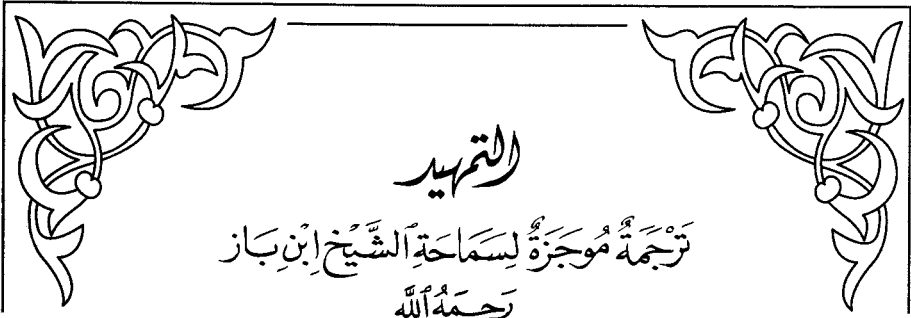 التمهيد
تَرْجَمَةٌ مُوجَزَةٌ لِسَمَاحَةِ ٱلشَّيْخِ ٱبْنِ بَاز
رَحِمَهُ ٱللَّه